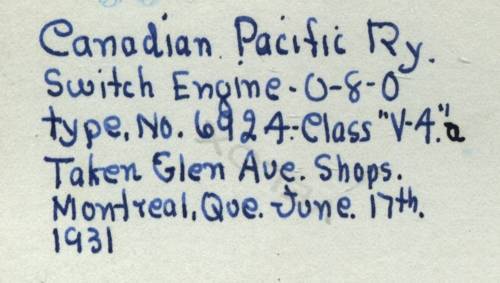 Canadian Pacific Ry.
Switch Engine-0-8-0
type, No. 6924-Class "V-4."a
Taken Glen Ave. Shops.
Montreal, Que. June. 17th.
1931